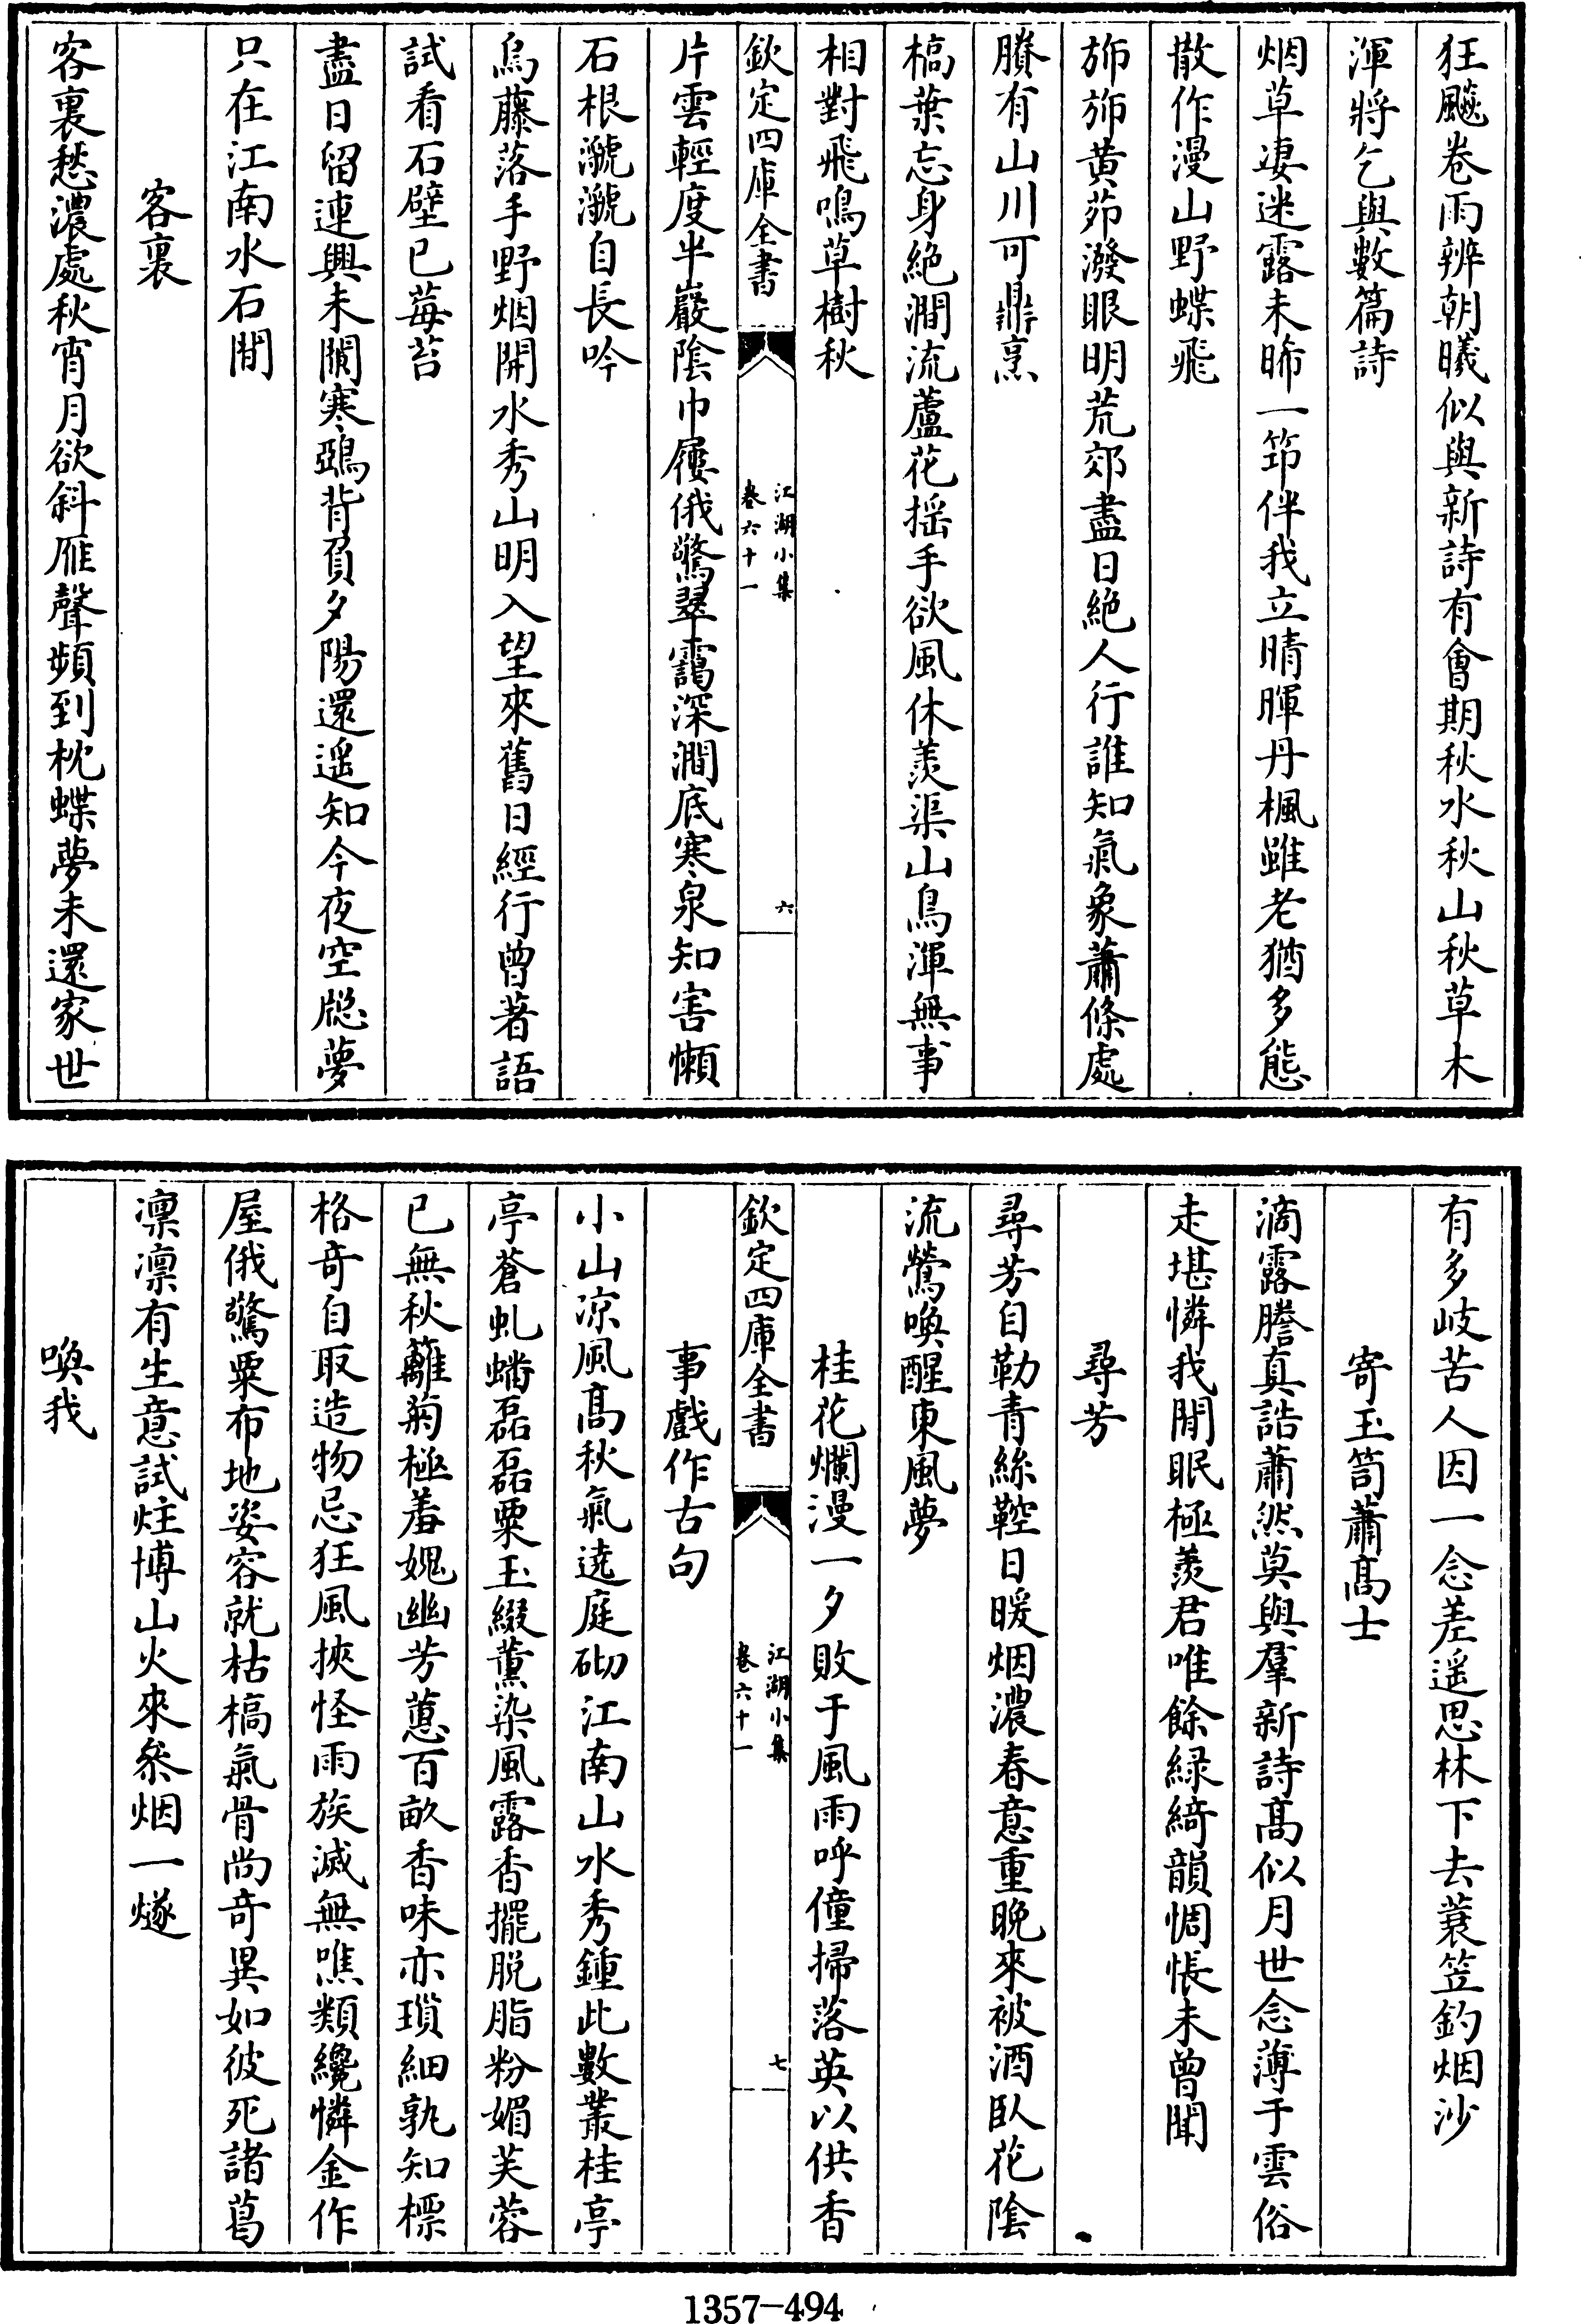 狂飈卷雨辨朝曦似與新詩有會期秋水秋山秋草木
渾將乞與數篇詩
烟草淒迷露未晞一笻伴我立晴暉丹楓雖老猶多態
散作漫山野蝶飛
斾斾黄茆潑眼明荒郊盡日絶人行誰知氣象蕭條處
賸有山川可鼎烹
槁葉忘身絶澗流蘆花揺手欲風休羡渠山鳥渾無事
相對飛鳴草樹秋
欽定四庫全書
江湖小集
卷六十一
六
片雲輕度半巖陰巾屨俄驚翠靄深澗底寒泉知害懶
石根㶁㶁自長吟
烏藤落手野烟開水秀山明入望來舊日經行曾著語
試看石壁已莓苔
盡日留連興未闌寒鵶背負夕陽還遥知今夜空牎夢
只在江南水石間
客裏
客裏愁濃處秋宵月欲斜雁聲頻到枕蝶夢未還家世
有多岐苦人因一念差遥思林下去蓑笠釣烟沙
寄玉笥蕭髙士
滴露謄真誥蕭然莫與羣新詩髙似月世念薄于雲俗
走堪憐我閒眠極羨君唯餘緑綺韻惆悵未曾聞
尋芳
尋芳自勒青絲鞚日暖烟濃春意重晩來被酒臥花陰
流鶯喚醒東風夢
桂花爛漫一夕敗于風雨呼僮掃落英以供香
欽定四庫全書
江湖小集
卷六十一
七
事戲作古句
小山凉風髙秋氣遶庭砌江南山水秀鍾此數叢桂亭
亭蒼虬蟠磊磊粟玉綴薰染風露香擺脱脂粉媚芙蓉
已無秋籬菊極羞媿幽芳蕙百畝香味亦瑣細孰知標
格竒自取造物忌狂風挾怪雨族滅無噍類纔憐金作
屋俄驚粟布地姿容就枯槁氣骨尚竒異如彼死諸葛
凛凛有生意試炷博山火來叅烟一燧
喚我
1357—494